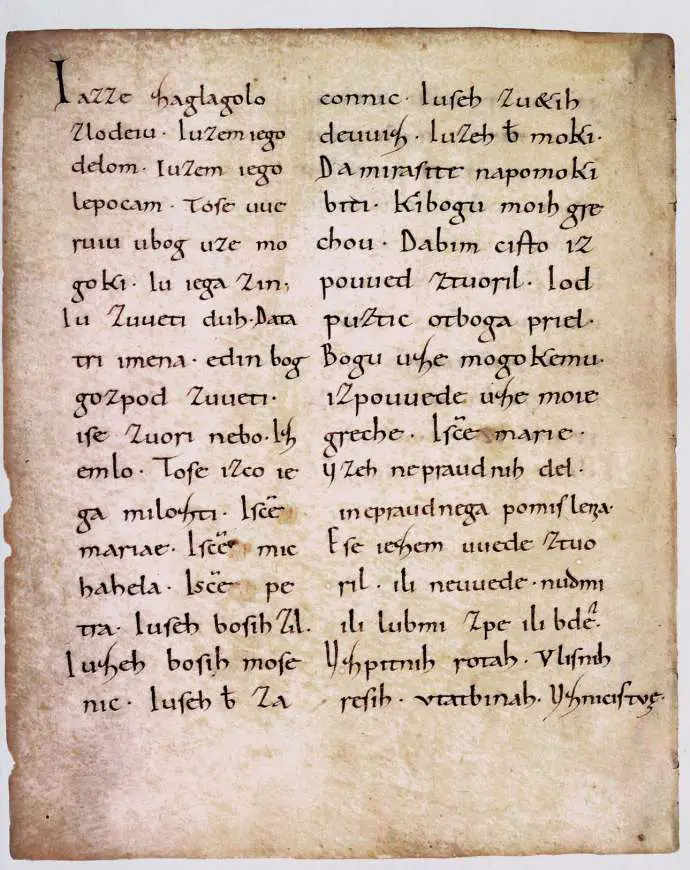 Iazze zaglagolo
zlodeiu · Iuzem iego
delom · Iuzem iego
lepocam · Tose uue
ruiu ubog uze mo
goki · Iu iega zin,
Iu zuueti duh · Data
tri imena · edin bog
gozpod zuueti ·
ise zuori nebo · Iz
emlo · Tose izco ie
ga milozti · Isc̄e
mariae · Isc̄e mic
hahela · Isc̄e pe
tra · Iuseh bosih zil.
Iuzeh bosih mose
nic · Iuseh b̄ za
connic · Iuseh zu&ih
deuuiz · Iuzeh b̄ moki ·
Da mirasite napomoki
biti · Kibogu moih gre
chou · Dabim cisto iz
pouued ztuoril · Iod
puztic otboga priel ·
Bogu uze mogokemu ·
izpouuede uze moie
greche · Isc̄e marie ·
Uzeh nepraudnih del ·
inepraudnega pomislenza ·
Ese iezem uuede ztuo
ril · ili neuuede · nudmi
ili lubmi zpe ili bde ·
Uzpitnih rotah · Vlisnih
resih · vtatbinah · Uznicistve ·